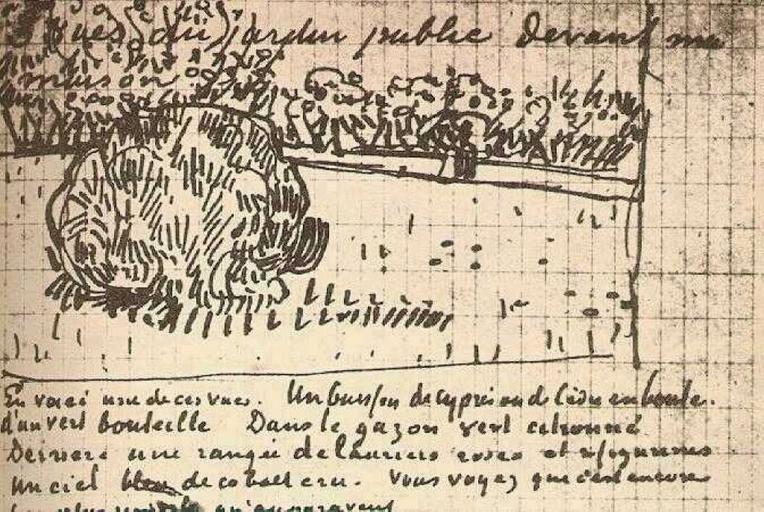 vues du jardin public devant ma
maison
En voici une de ces vues. Un buisson de cyprès en boule.
d'un vert bouteille Dans le gazon vert citronné
Derriere une rangée de lauriers roses et
un ciel bleu de cobalt cru. Vous voyez que c'est encore
plus simple qu'auparavant